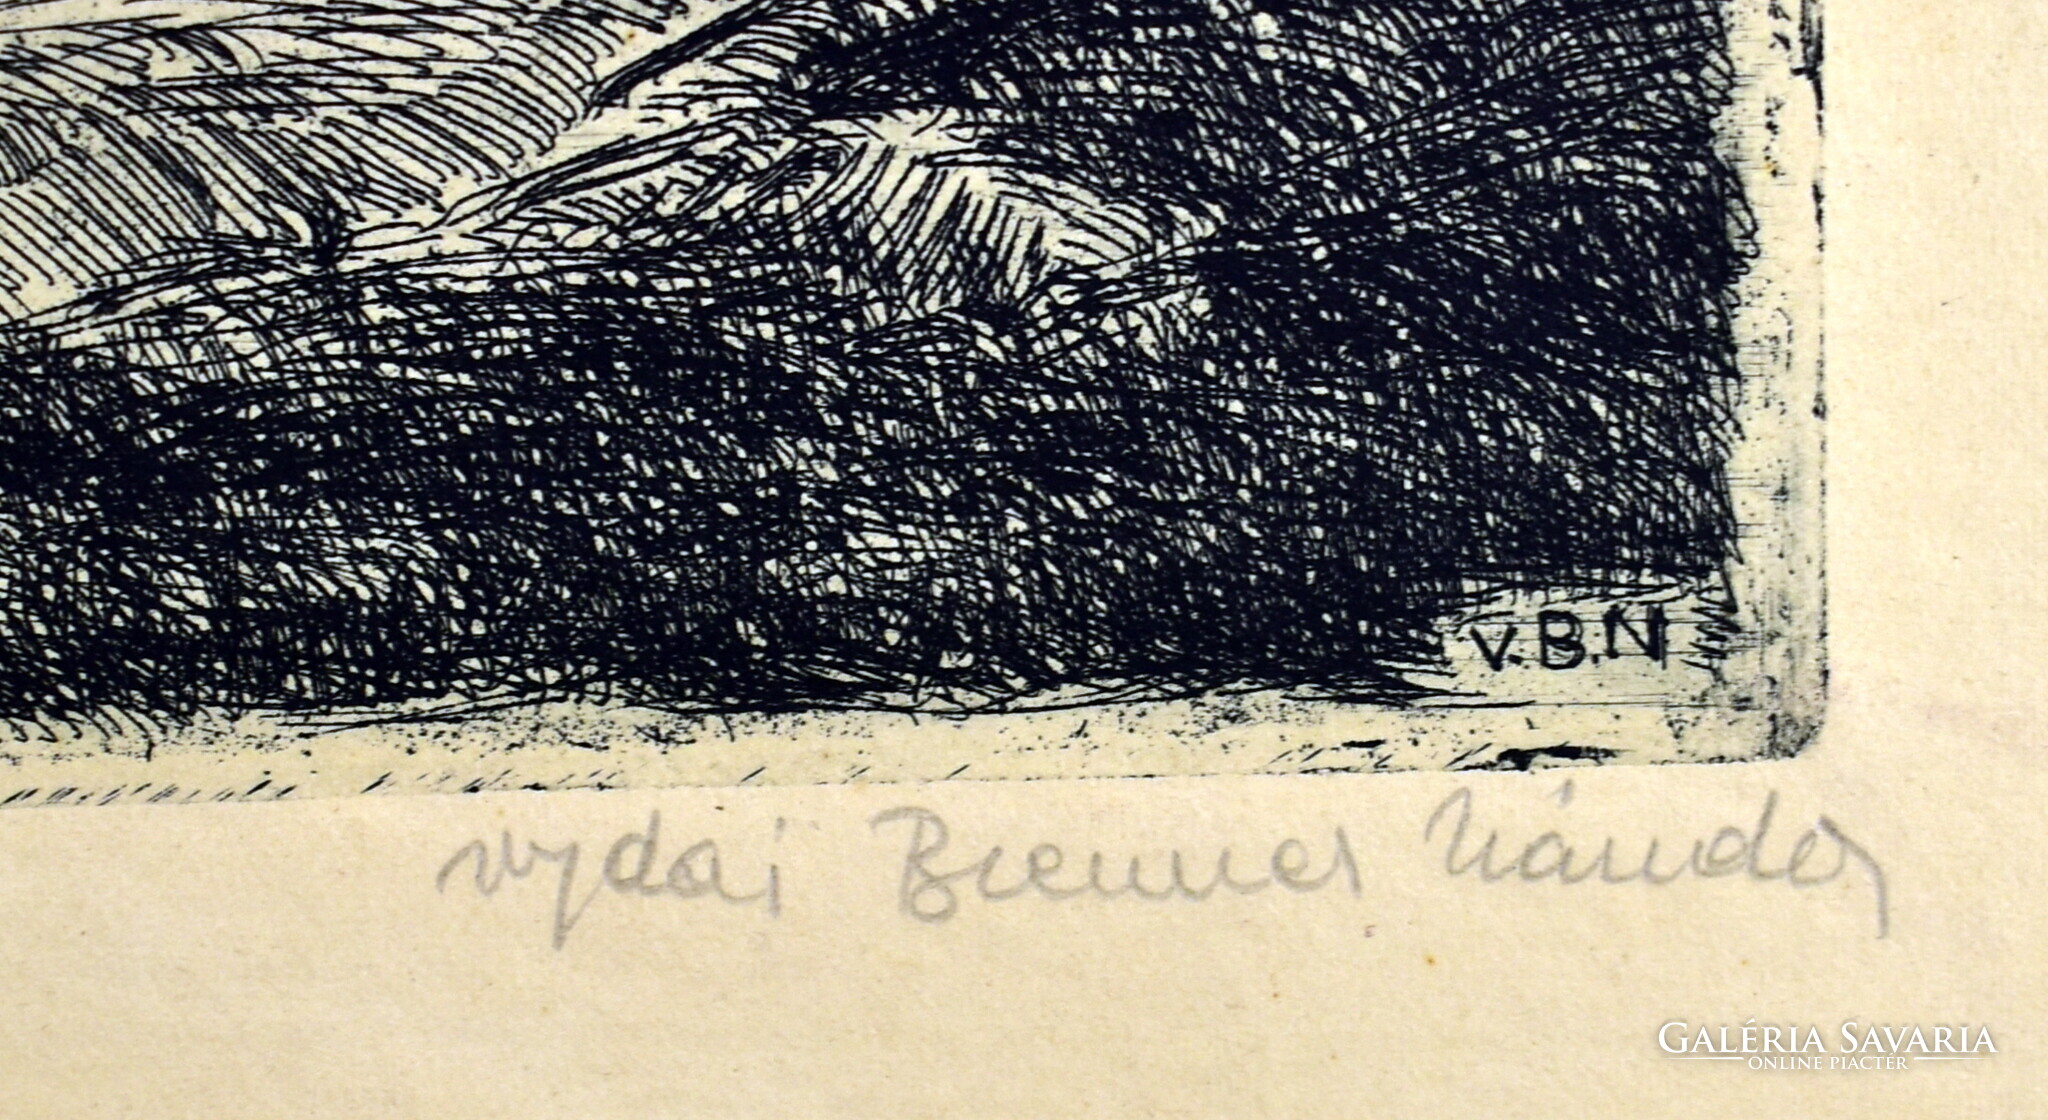 V.B.N
vydai Brenner Nándor
GALÉRIA SAVARIA
ONLINE PIACTÉR